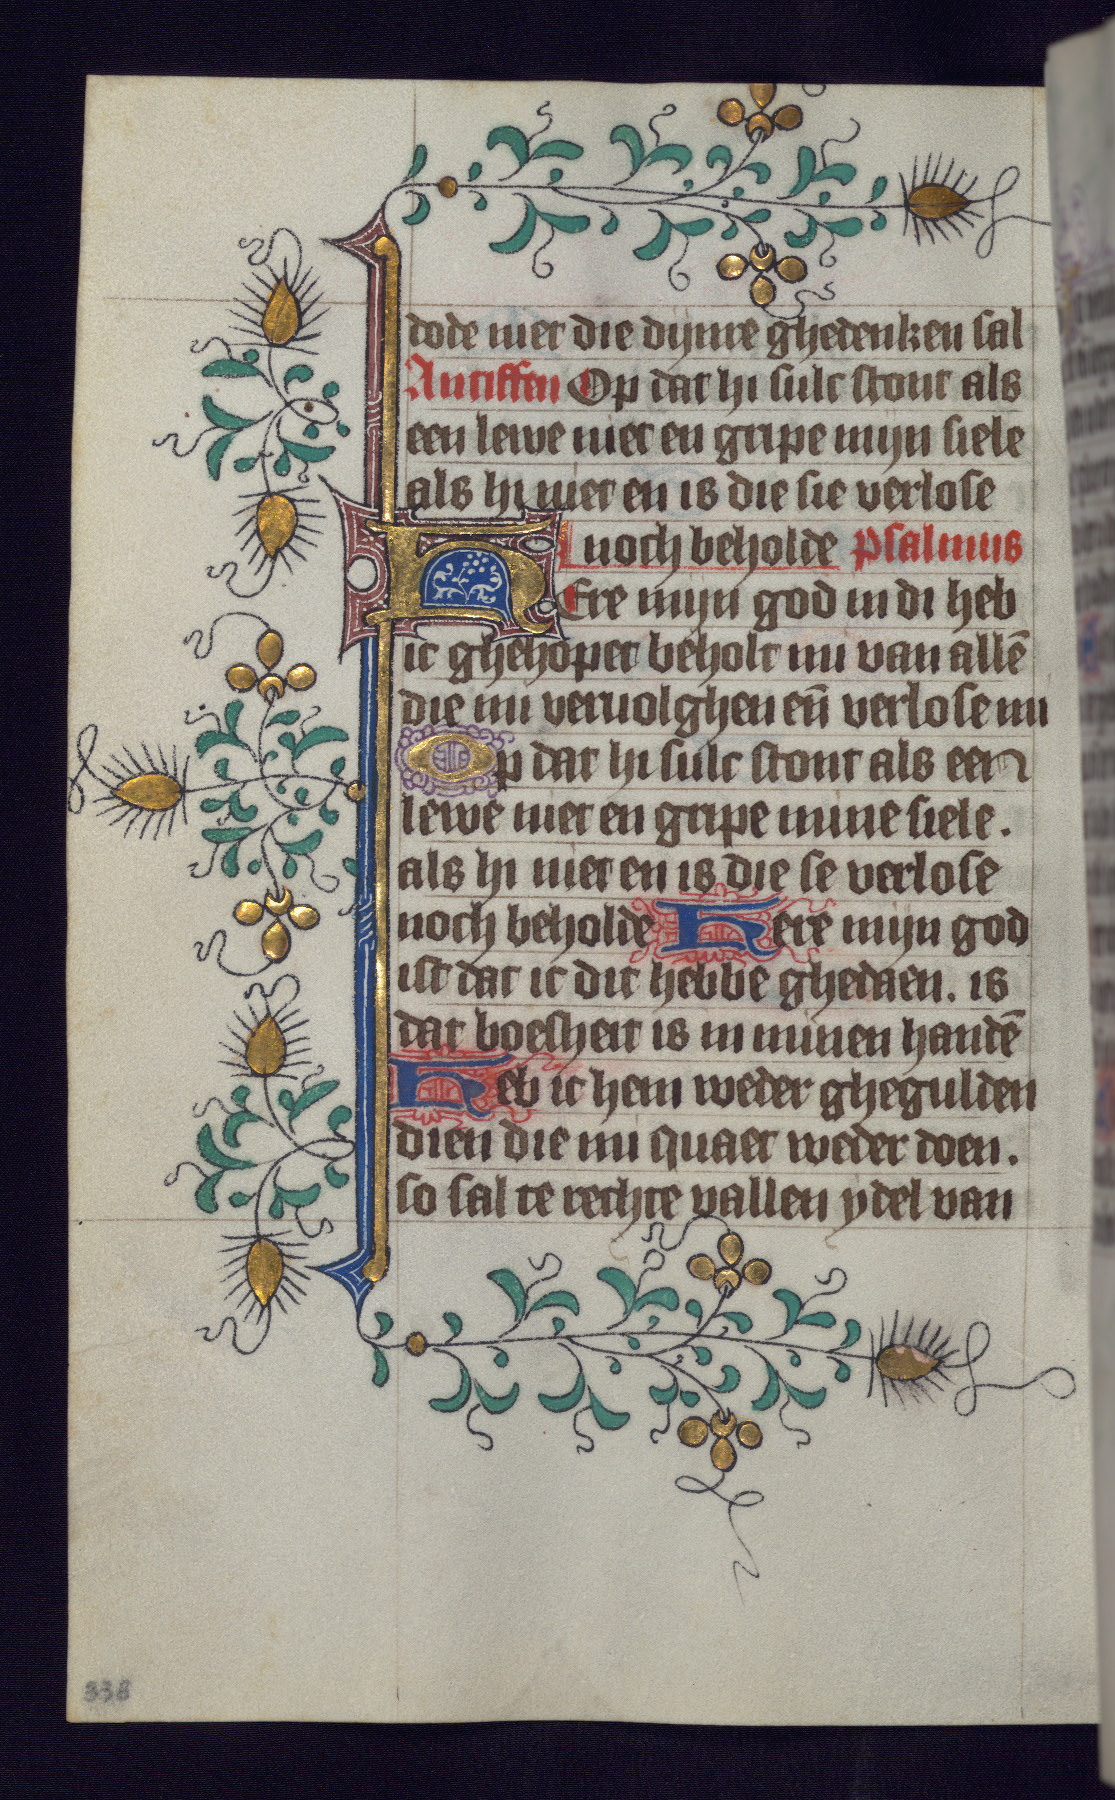 dode niet die dijnre ghedenken sal
Antiffen Op dat hi sulc stont als
een lewe niet en gripe mijn siele
als hi niet en is die sie verlose
noch beholde Psalmus
HEre mijn god in di heb
ic ghehopet beholt mi van allē
die mi veruolghen eñ verlose mi
Op dat hi sulc stont als een
lewe niet en gripe mine siele.
als hi niet en is die se verlose
noch beholde Here mijn god
ist dat ic dit hebbe ghedaen. is
dat boesheit is in minen handē
Heb ic hem weder ghegulden
dien die mi quaet weder doen.
so sal te rechte vallen ydel van
338